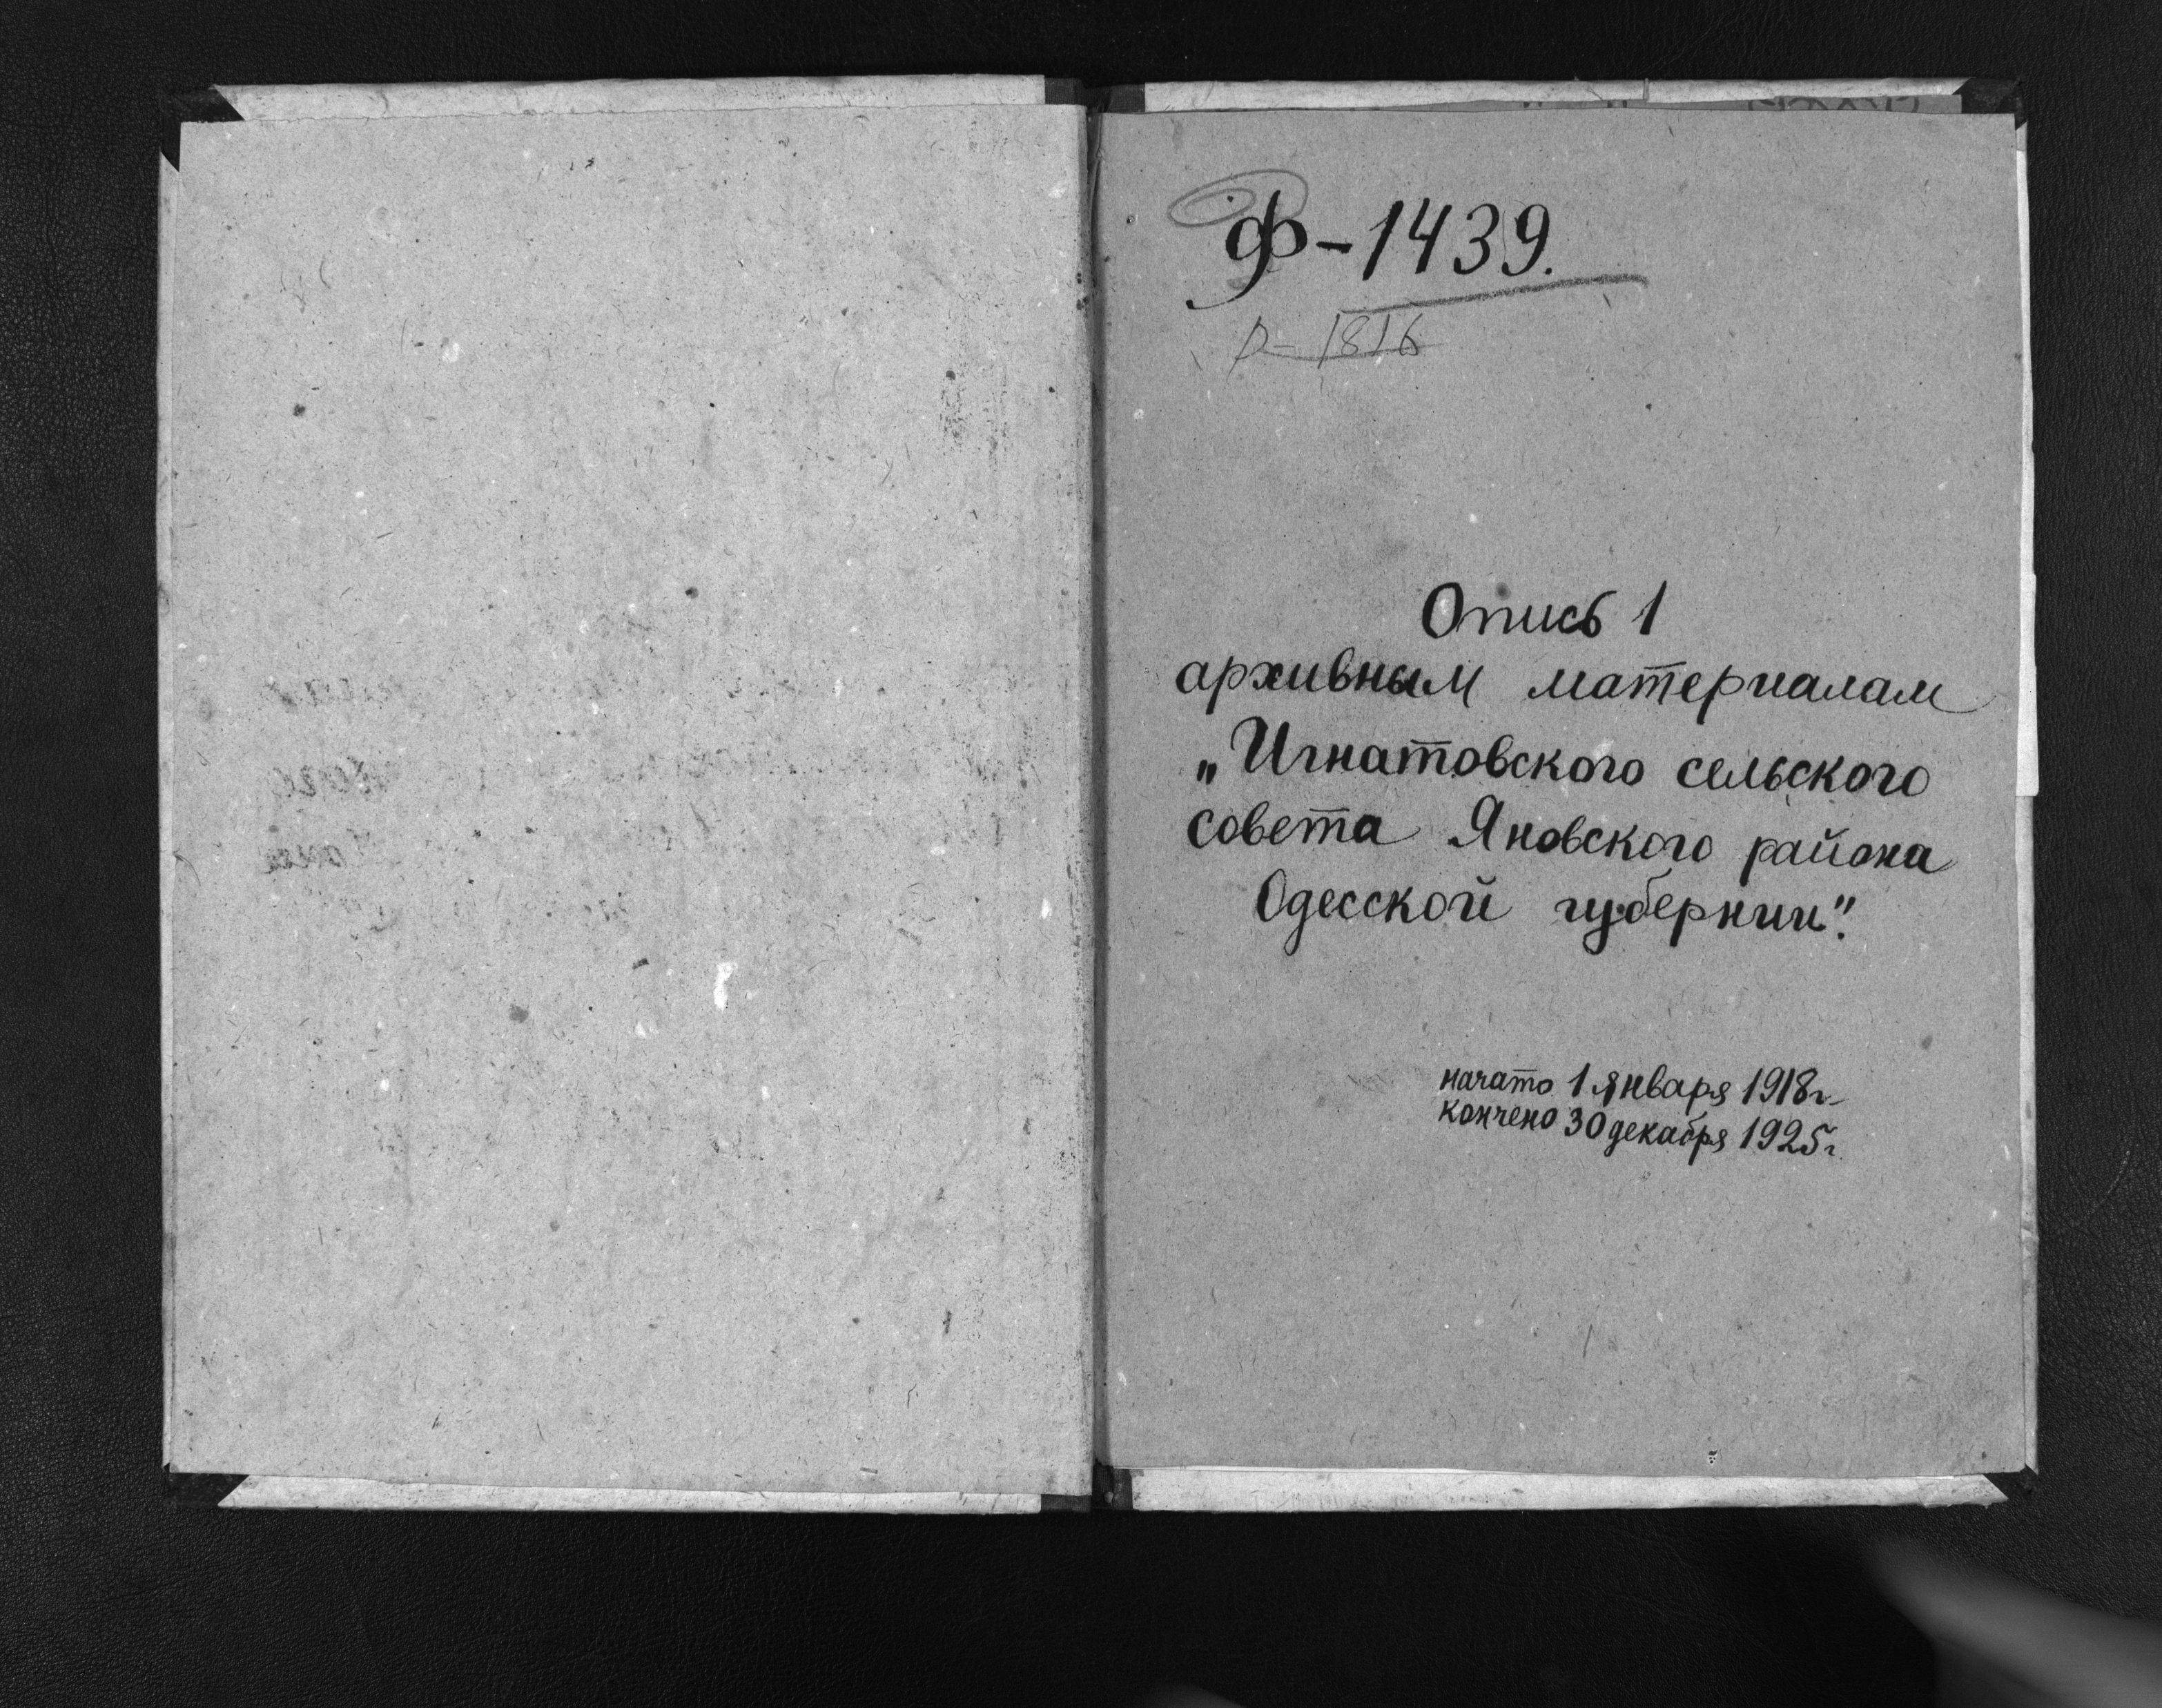 Ф-1439.
Р-1816
Опись 1
архивным материалам
„Игнатовского сельского
совета Яновского района
Одесской губернии".
начато 1 января 1918г.
кончено 30 декабря 1925г.